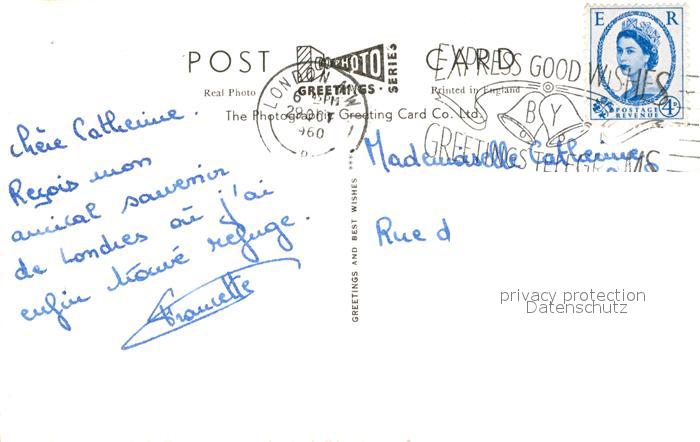 POST CARD
PHOTO
GREETINGS
SERIES
Real Photo
Printed in England
The Photographic Greeting Card Co. Ltd.
GREETINGS AND BEST WISHES ***
LONDON
6 PM
OCT
1960
EXPRESS GOOD WISHES
BY
GREETINGS TELEGRAMS
E R
POSTAGE
REVENUE
4D
Chère Catherine.
Reçois mon
amical souvenir
de Londres où j'ai
enfin trouvé refuge.
Francette
Mademoiselle Catherine
Rue d
privacy protection
Datenschutz